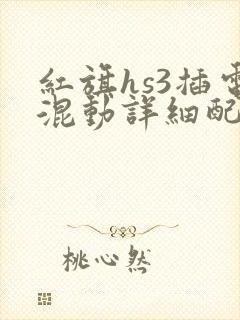 紅旗hs3插電
混動詳細配
桃心然